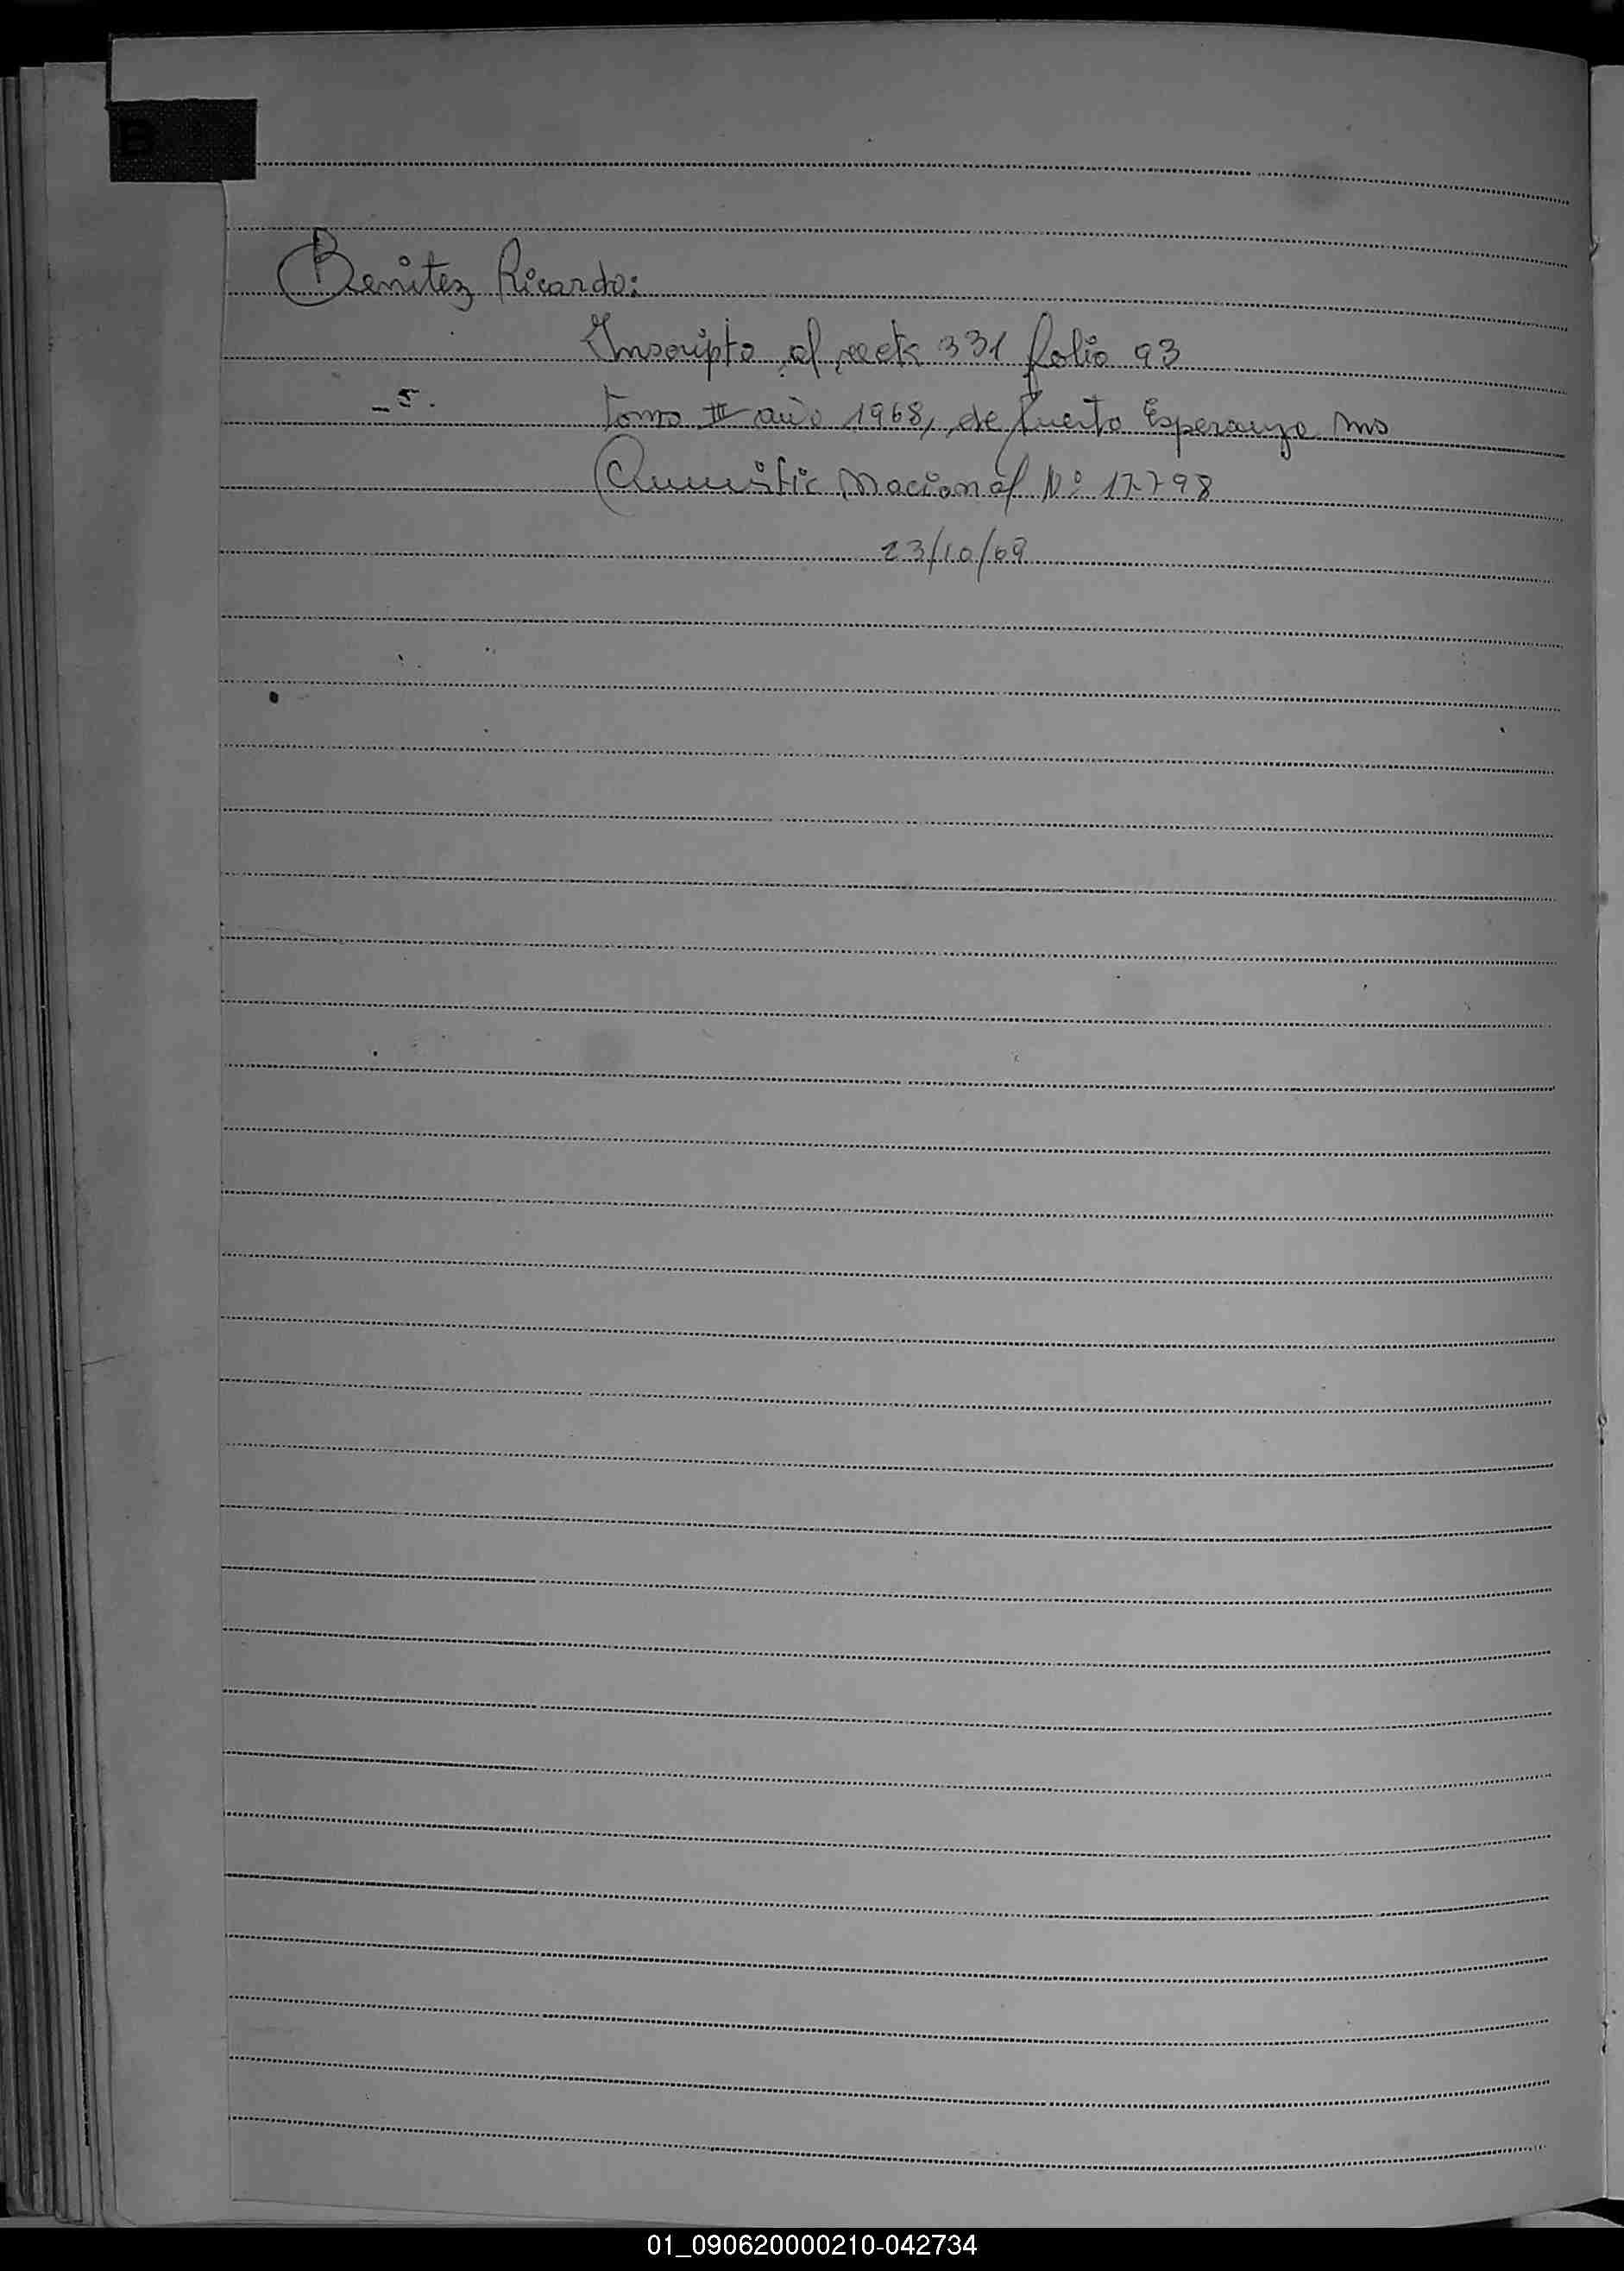 B
Benitez Ricardo:
Inscripto al acta 331 folio 93
- 5. tomo III año 1968, de Puerto Esperanza Mns
Nacional Nº 17798
23/10/69
01_090620000210-042734